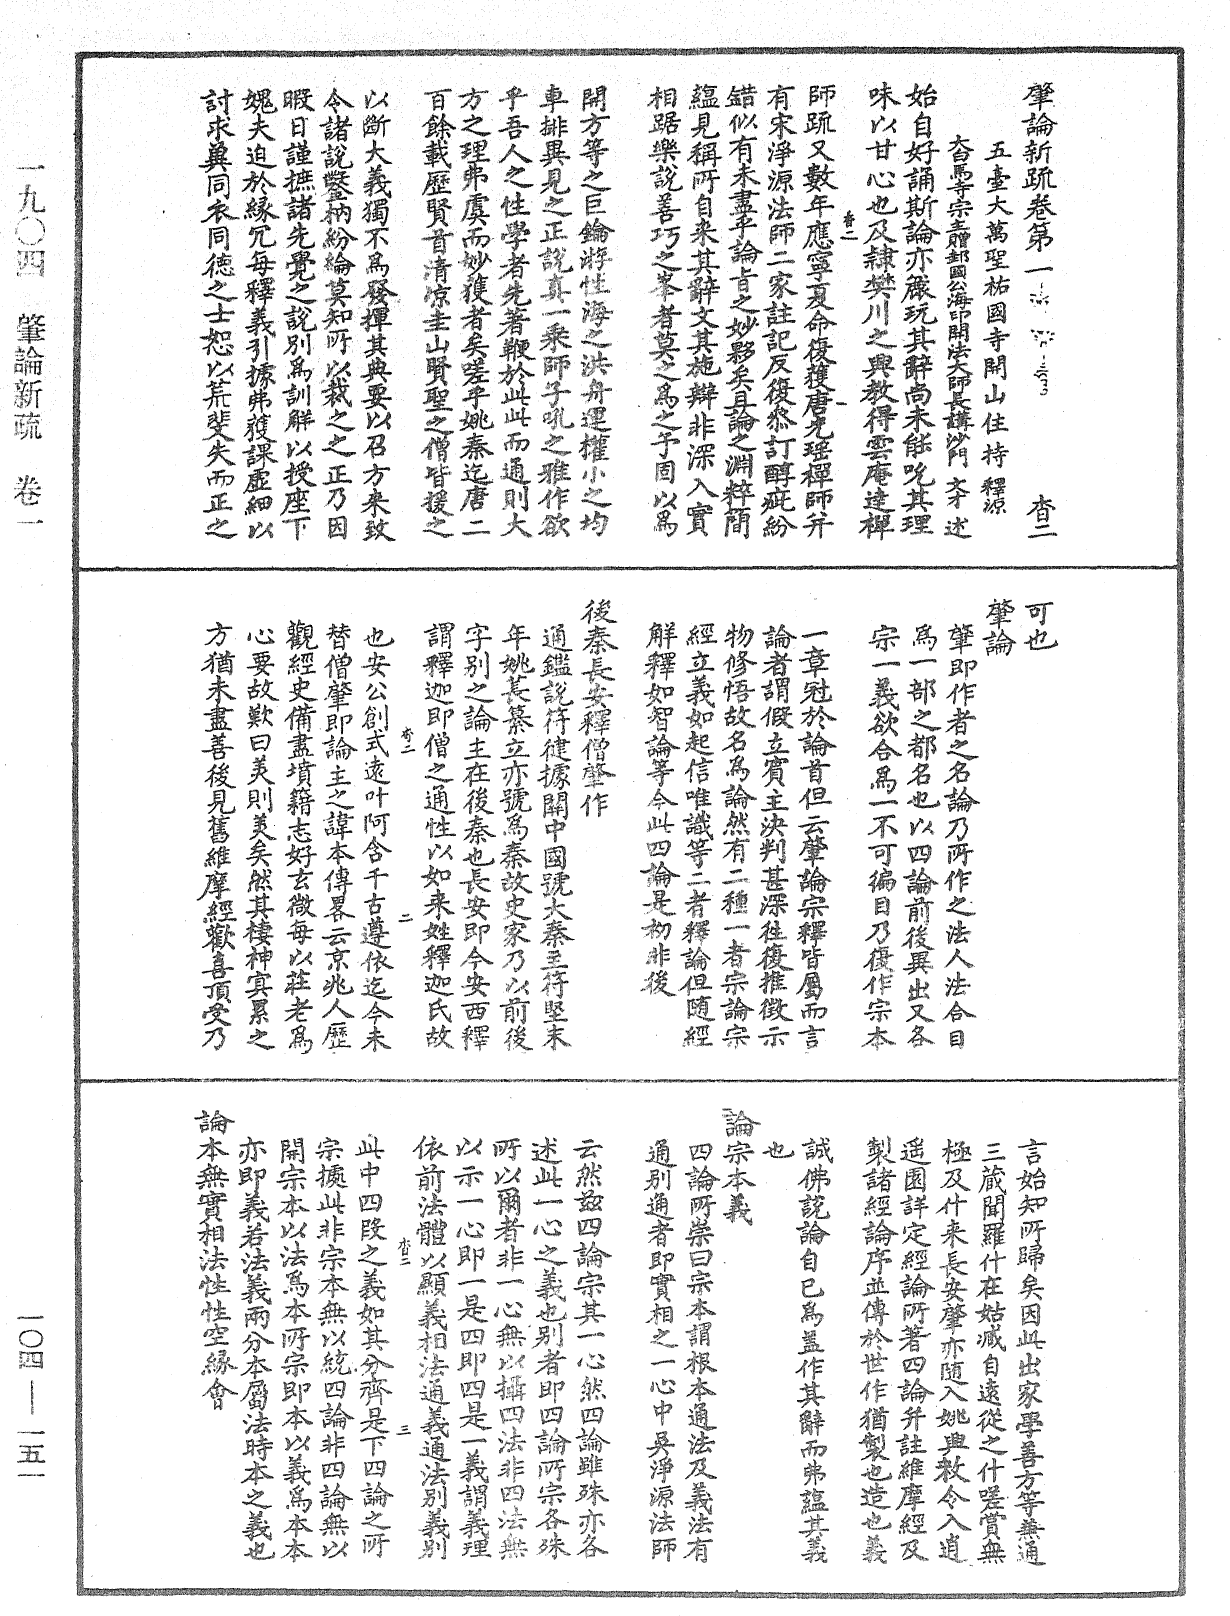 肇論新疏卷第一 杳二
五臺大萬聖祐國寺開山住持 釋源
大白馬寺宗主贈邽國公海印開法大師長講沙門 文才 述
始自好誦斯論亦嚴玩其辭尚未能吮其理
味以甘心也及隸樊川之興教得雲庵達禪
師疏又數年應寧夏命復獲唐光瑤禪師并
有宋淨源法師二家註記反復參訂醇疵紛
錯似有未盡乎論旨之妙夥矣且論之淵粹簡
蘊見稱所自來其辭文其施辯非深入實
相踞樂說善巧之峯者莫之爲之予固以爲
開方等之巨鑰游性海之洪舟運權小之均
車排異見之正說真一乘師子吼之雅作欲
乎吾人之性學者先著鞭於此此而通則大
方之理弗虞而妙獲者矣嗟乎姚秦迄唐二
百餘載歷賢首清涼圭山賢聖之僧皆援之
以斷大義獨不爲發揮其典要以召方來致
令諸說鑿枘紛綸莫知所以裁之之正乃因
暇日謹摭諸先覺之說別爲訓解以授座下
媿夫迫於緣冗每釋義引據弗獲課虛細以
討求冀同衣同德之士恕以荒斐失而正之
可也
肇論
肇即作者之名論乃所作之法人法合目
爲一部之都名也以四論前後異出又各
宗一義欲合爲一不可徧目乃復作宗本
一章冠於論首但云肇論宗釋皆屬而言
論者謂假立賓主決判甚深往復推徵示
物修悟故名爲論然有二種一者宗論宗
經立義如起信唯識等二者釋論但隨經
解釋如智論等今此四論是初非後
後秦長安釋僧肇作
通鑑說符健據關中國號大秦至符堅末
年姚萇纂立亦號爲秦故史家乃以前後
字別之論主在後秦也長安即今安西釋
謂釋迦即僧之通性以如來姓釋迦氏故
也安公創式遠叶阿含千古遵依迄今未
替僧肇即論主之諱本傳畧云京兆人歷
觀經史備盡墳籍志好玄微每以莊老爲
心要故歎曰美則美矣然其棲神冥累之
方猶未盡善後見舊維摩經歡喜頂受乃
言始知所歸矣因此出家學善方等兼通
三藏聞羅什在姑臧自遠從之什嗟賞無
極及什來長安肇亦隨入姚興敕令入逍
遥園詳定經論所著四論并註維摩經及
製諸經論序並傳於世作猶製也造也義
誠佛說論自已爲盖作其辭而弗蘊其義
也
論宗本義
四論所崇曰宗本謂根本通法及義法有
通別通者即實相之一心中吳淨源法師
云然茲四論宗其一心然四論雖殊亦各
述此一心之義也別者即四論所宗各殊
所以爾者非一心無以攝四法非四法無
以示一心即一是四即四是一義謂義理
依前法體以顯義相法通義通法別義別
此中四段之義如其分齊是下四論之所
宗據此非宗本無以統四論非四論無以
開宗本以法爲本所宗即本以義爲本本
亦即義若法義兩分本屬法時本之義也
論本無實相法性性空緣會
杳二
一
杳二
二
杳二
三
一九〇四 肇論新疏 卷一
一〇四—一五一